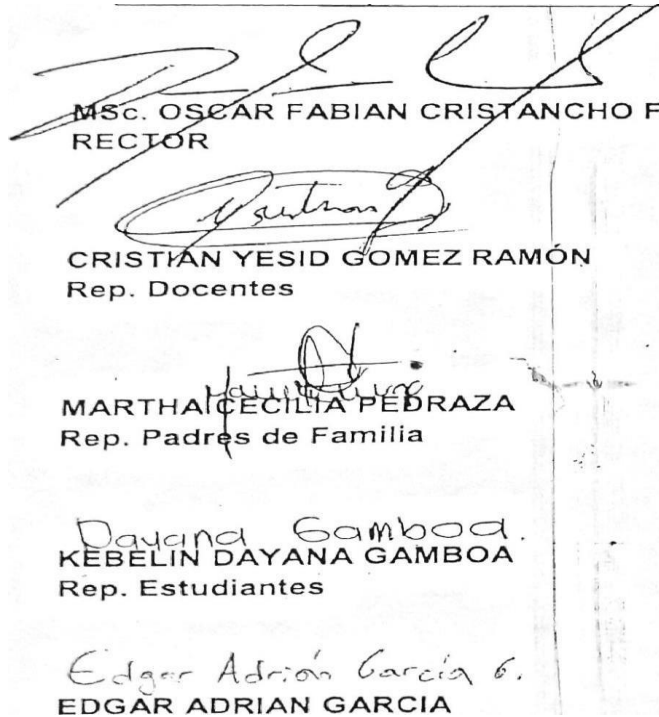 MSc. OSCAR FABIAN CRISTANCHO F
RECTOR
CRISTIAN YESID GOMEZ RAMÓN
Rep. Docentes
MARTHA CECILIA PEDRAZA
Rep. Padres de Familia
Dayana Gamboa.
KEBELIN DAYANA GAMBOA
Rep. Estudiantes
Edgar Adrián García G.
EDGAR ADRIAN GARCIA